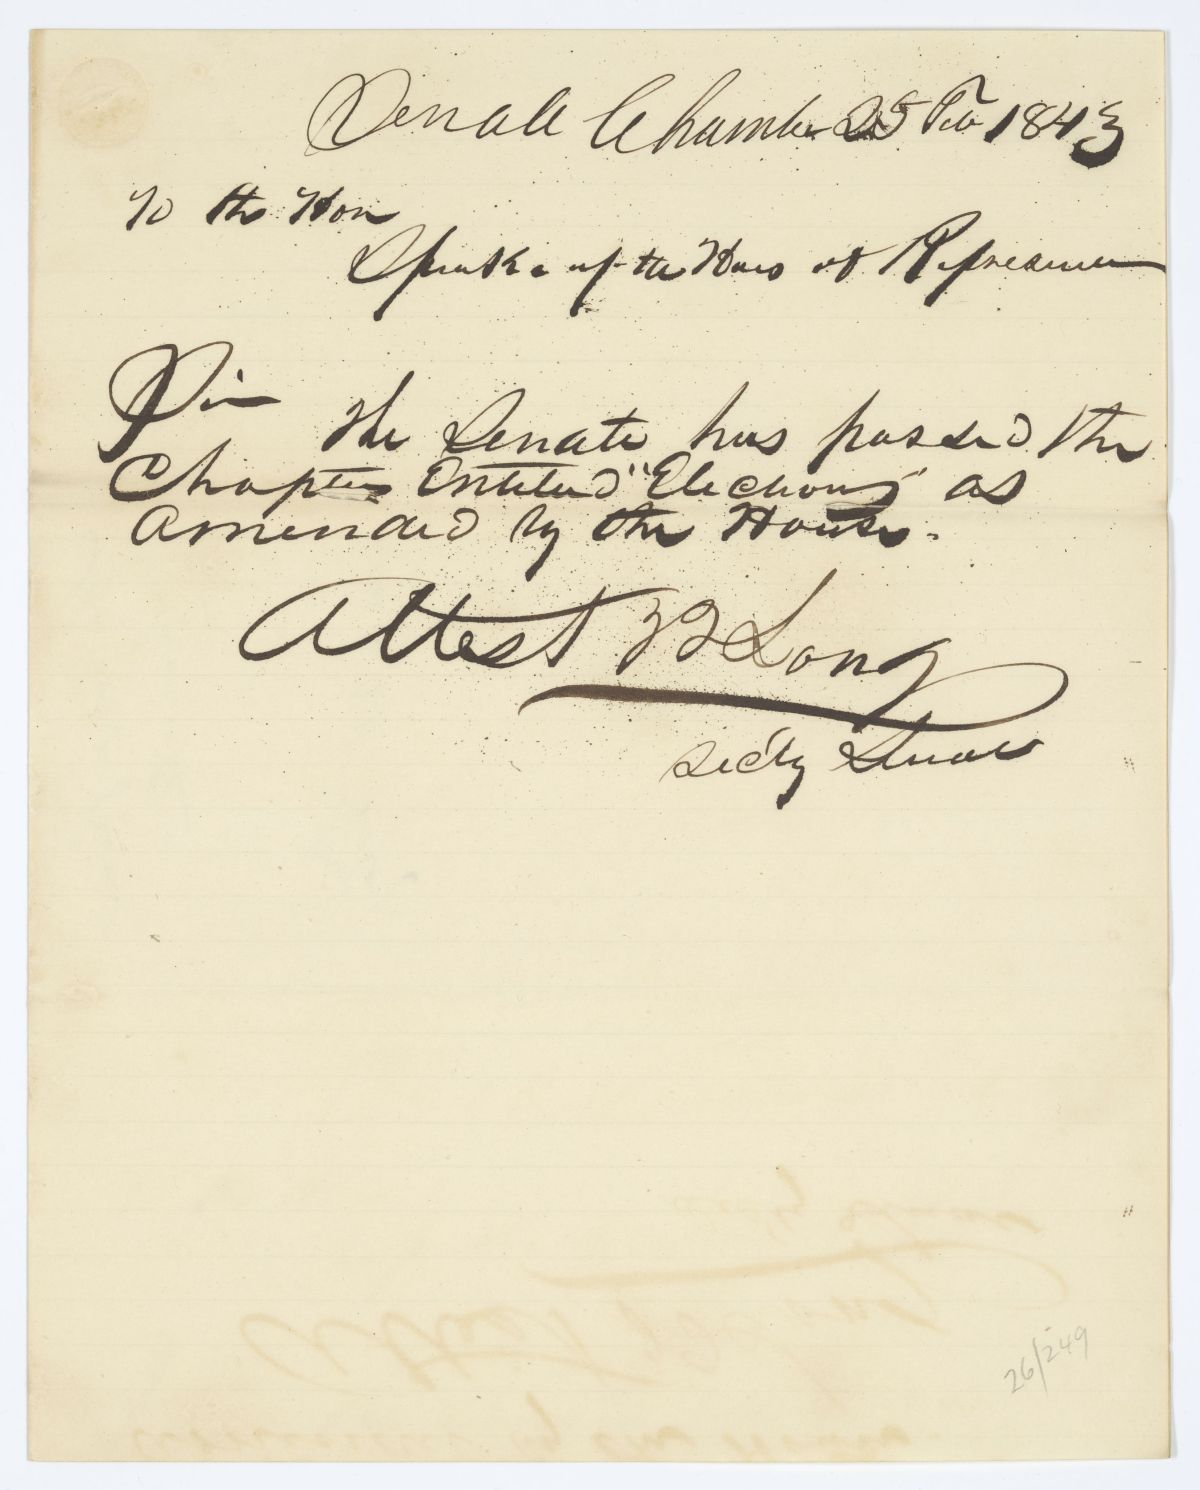 Senate Chamber 25 Feb 1843
To the Hon
Speaker of the Hous of
Sir
The Senate has passed the
Chapter Entitled "Elections" as
amended by the House.
Attest B Long
Sec'ty Senate
26/249